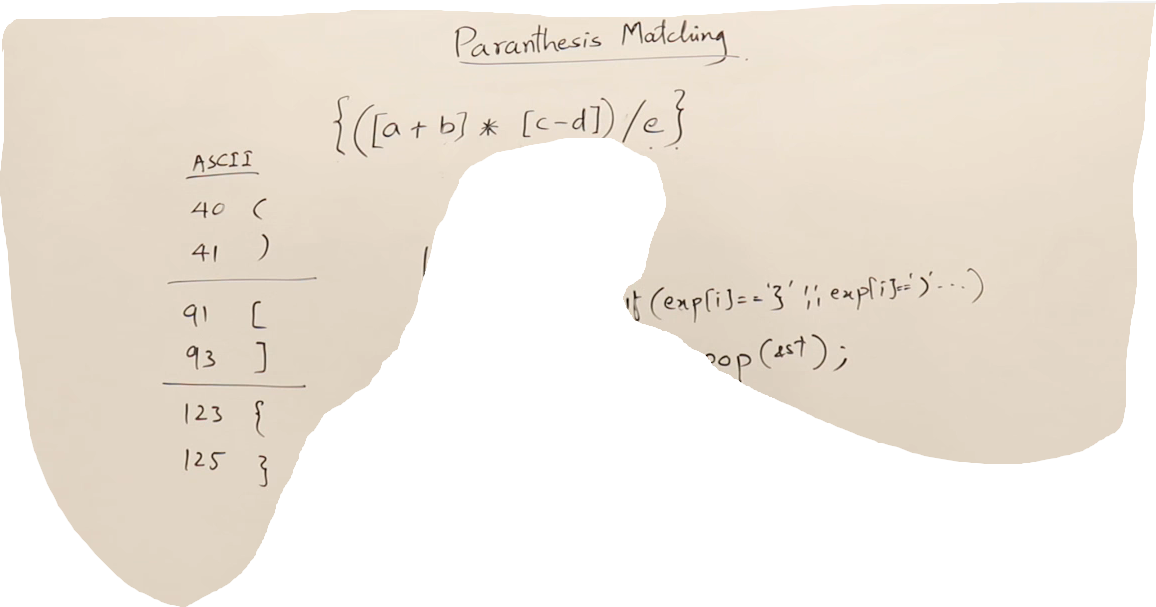 Paranthesis Matching
{([a+b] * [c-d])/e}
ASCII
40 (
41 )
91 [
93 ]
123 {
125 }
if (exp[i]=='}' || exp[i]==')'...)
pop(&st);